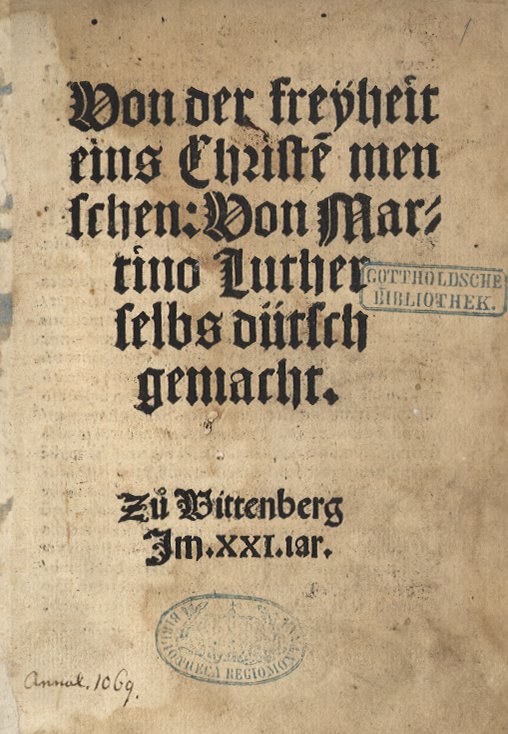 Von der freÿheit
eins Christē men
schen: Von Mar⸗
tino Luther
selbs dütsch
gemacht.
GOTTHOLDSCHE
BIBLIOTHEK.
Zů Wittenberg
Im.XXI.iar.
BIBLIOTHECA REGIOMON
Annal. 1069.